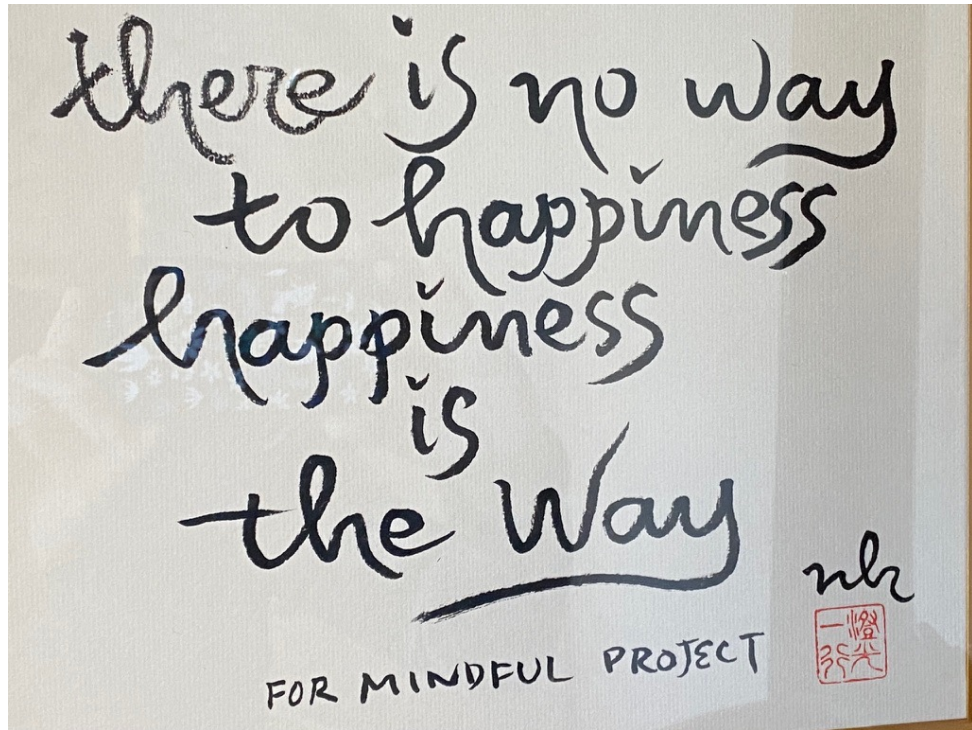 there is no way
to happiness
happiness
is
the Way
nh
FOR MINDFUL PROJECT
一行
澄光